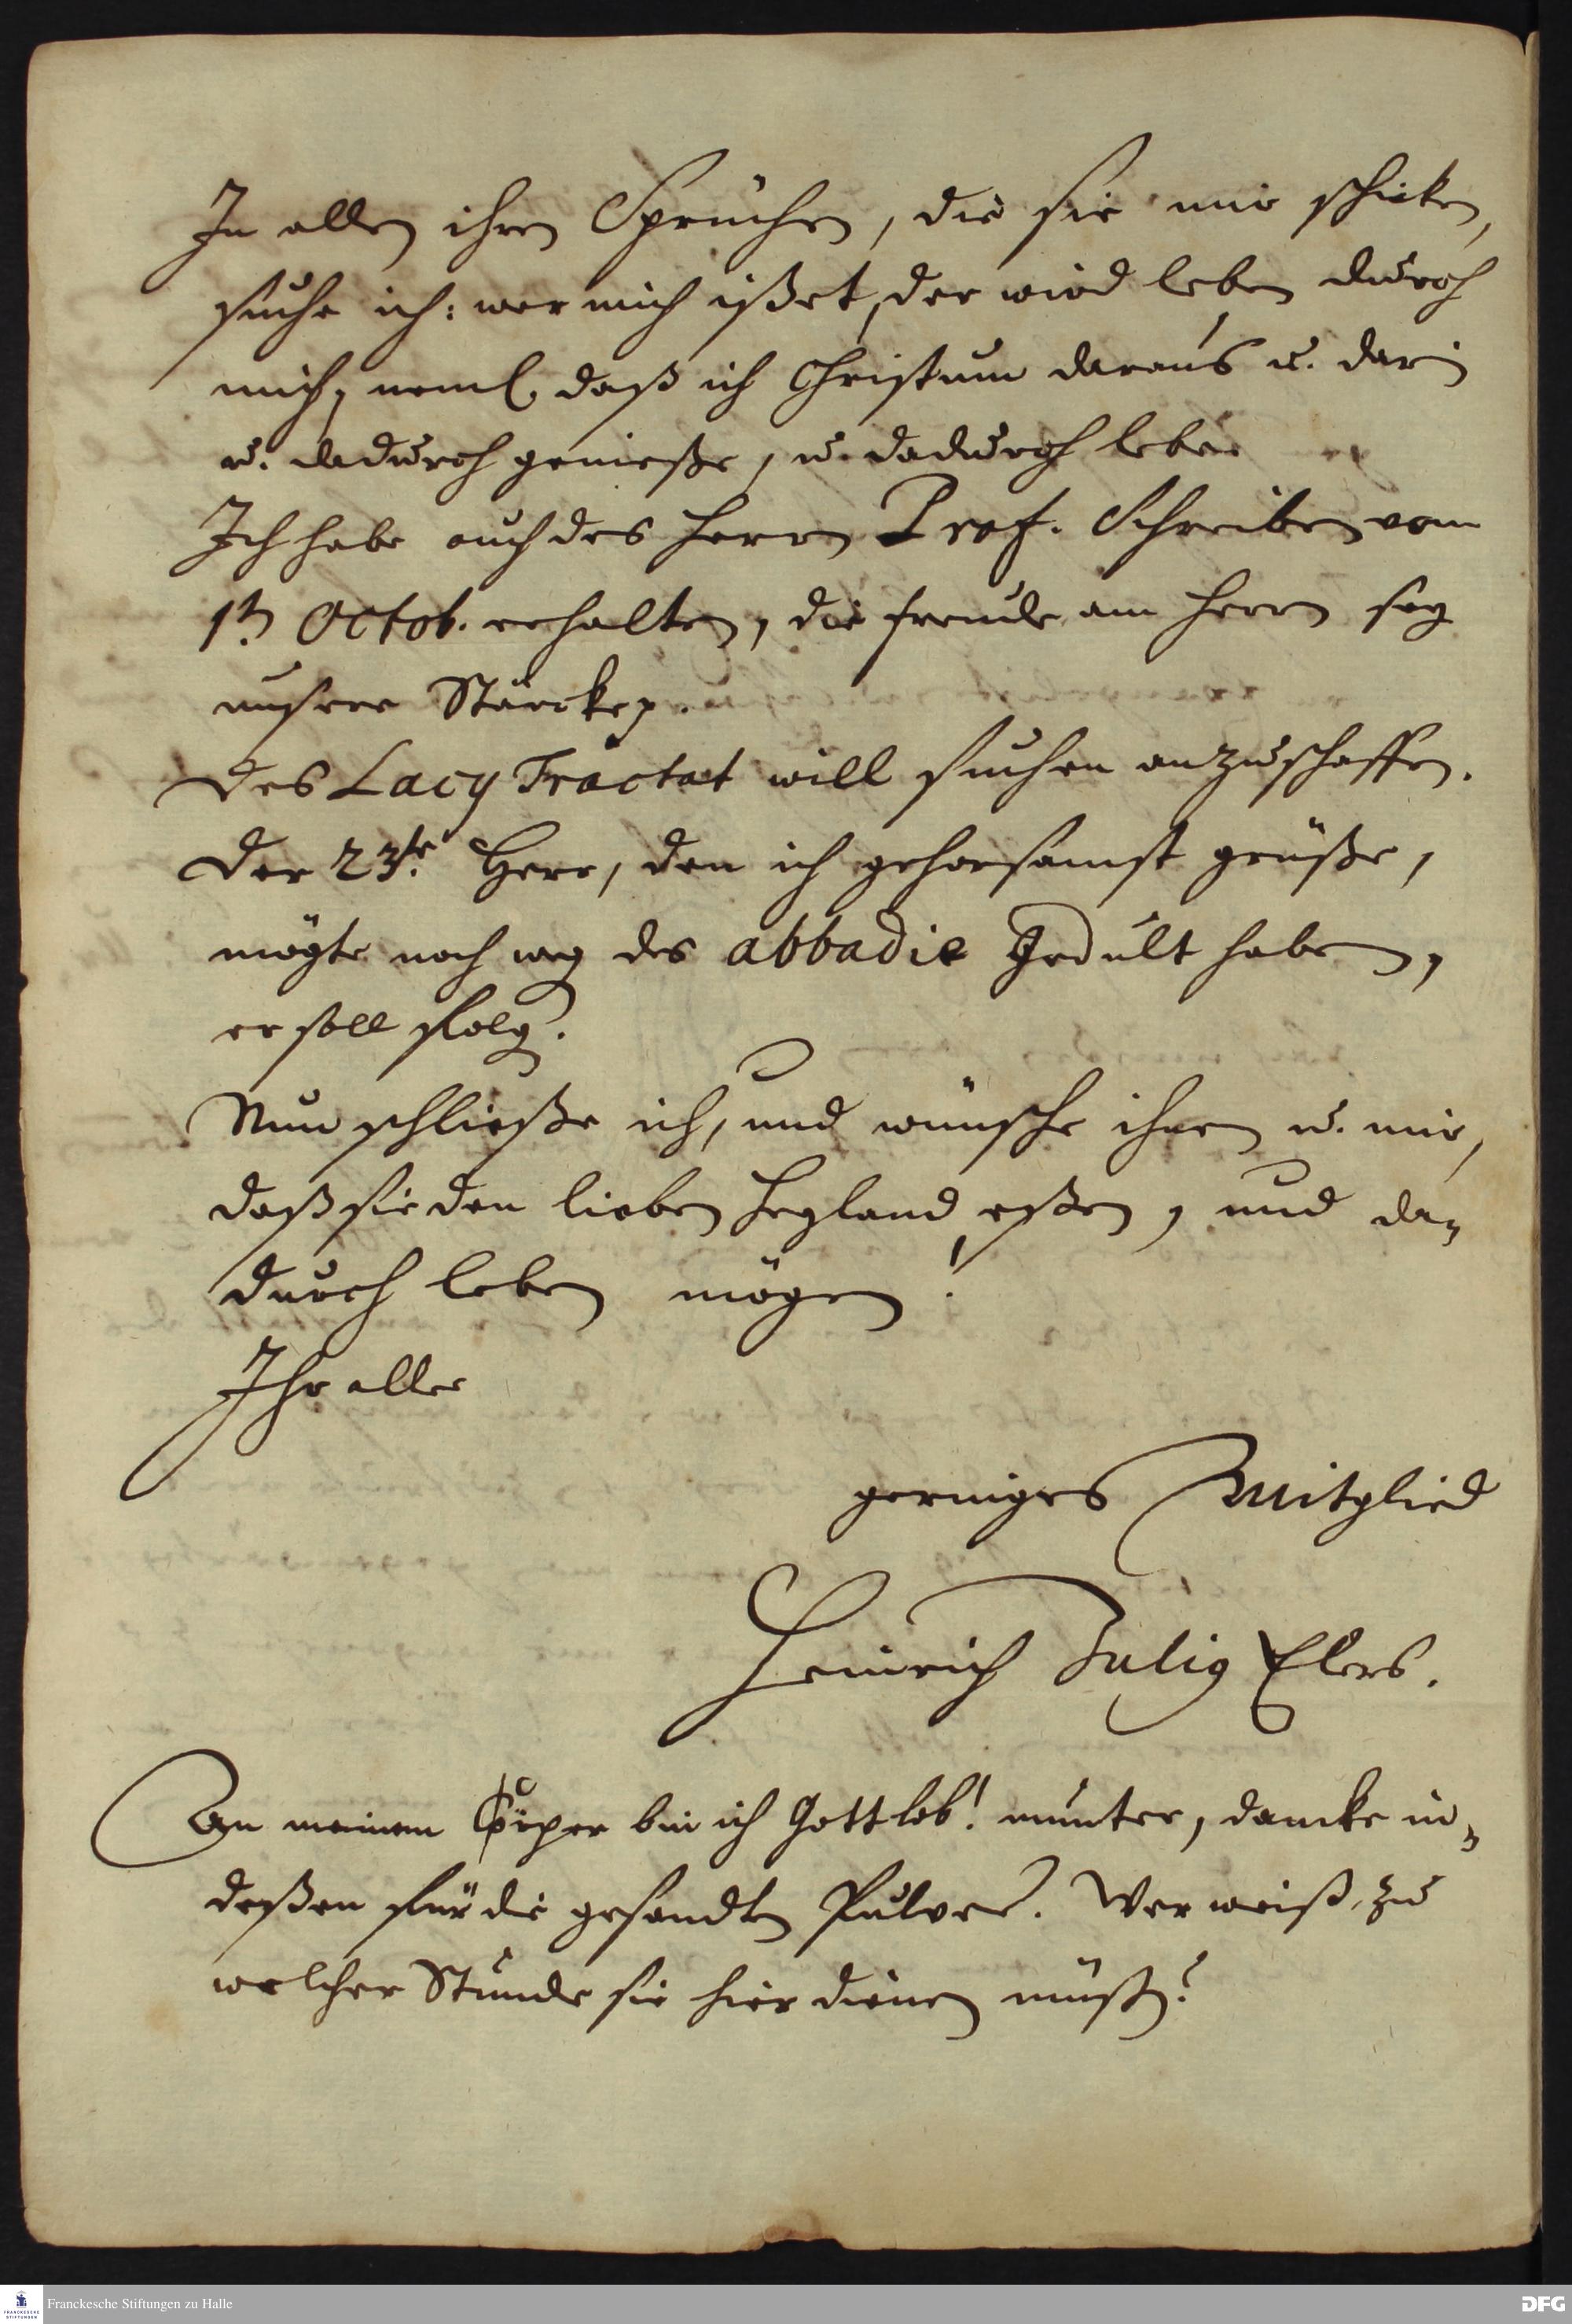 In allen ihren Sprüchen, die sie mir schicken,
suche ich: wer mich ißet, der wird leben durch
mich, neml. daß ich Christum daraus u. darin
u. dadurch genieße, u. dadurch lebe.
Ich habe auch des Herrn Prof. Schreiben vom
1ten Octob. erhalten, die Freude am Herrn sey
unsere Stärcke p.
Des Lacy Tractat will suchen anzuschaffen.
Der 23te Herr, den ich gehorsamst grüße,
mögte noch weg des abbadie Gedult haben,
er soll folg.
Nun schließe ich, und wünsche ihnen u. mir,
daß sie den lieben Heyland eßen, und da-
durch leben mögen!
Ihr aller
geringes Mitglied
Heinrich Julig Elers.
An meinem Cörper bin ich Gottlob! munter, dancke in-
deßen für die gesandten Pulver. Wer weiß, zu
welcher Stunde sie hier dienen müß?
Franckesche Stiftungen zu Halle
FRANCKESCHE
STIFTUNGEN
DFG